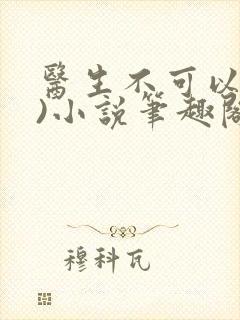 醫生不可以
)小說筆趣閣
穆科瓦